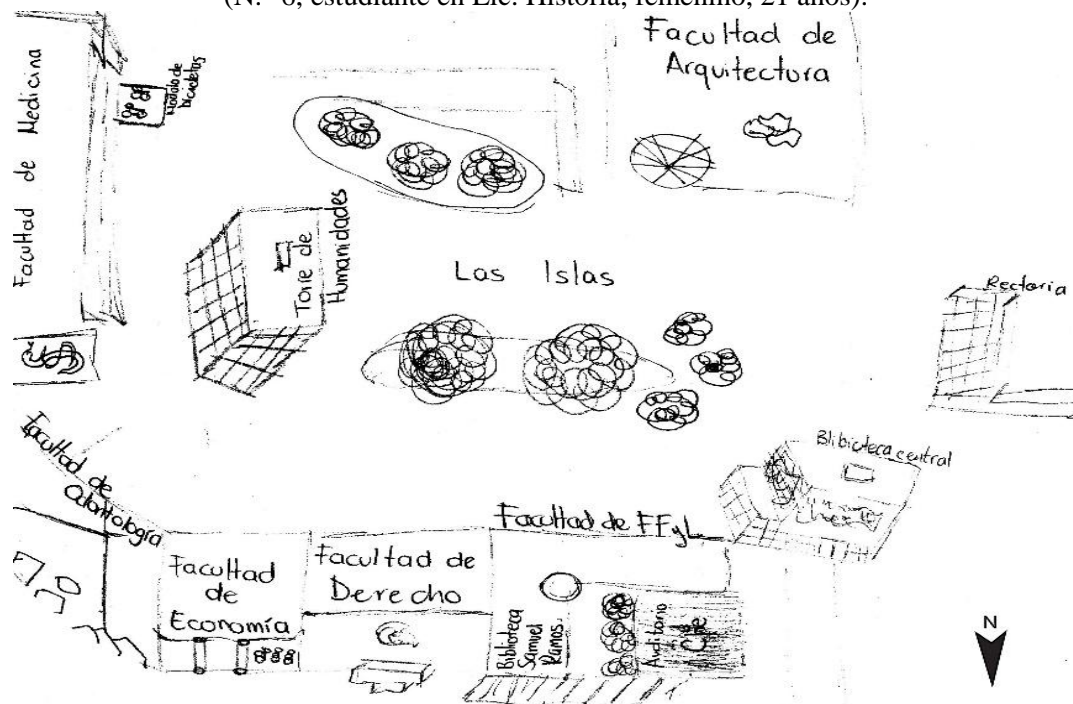 (N.º 6, estudiante en Lic. Historia, femenino, 21 años).
Facultad de Medicina
Modulo de
bicicletas
Facultad de
Arquitectura
Torre de
Humanidades
Las Islas
Rectoria
Facultad de
Odontología
Blibioteca central
Facultad de FFyL
Facultad
de
Economía
Facultad de
Derecho
Biblioteca
Samuel
Ramos
Auditorio
Che
N